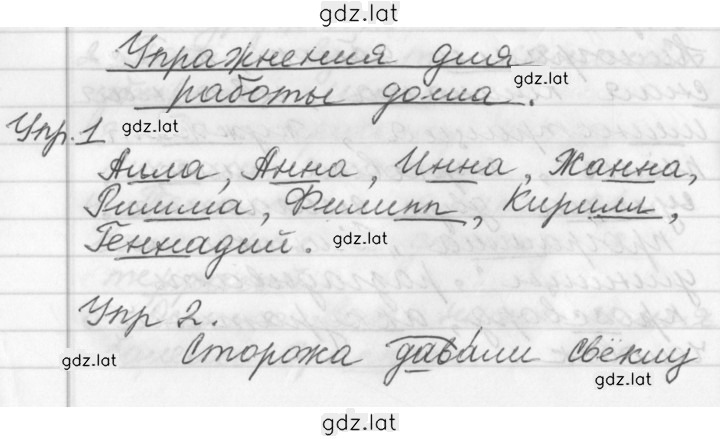 gdz.lat
Упражнения для
gdz.lat
работы дома.
Упр. 1
gdz.lat
Алла, Анна, Инна, Жанна,
Римма, Филипп, Кирилл,
Геннадий.
gdz.lat
Упр 2.
Сторожа давали свёклу
gdz.lat
gdz.lat
gdz.lat